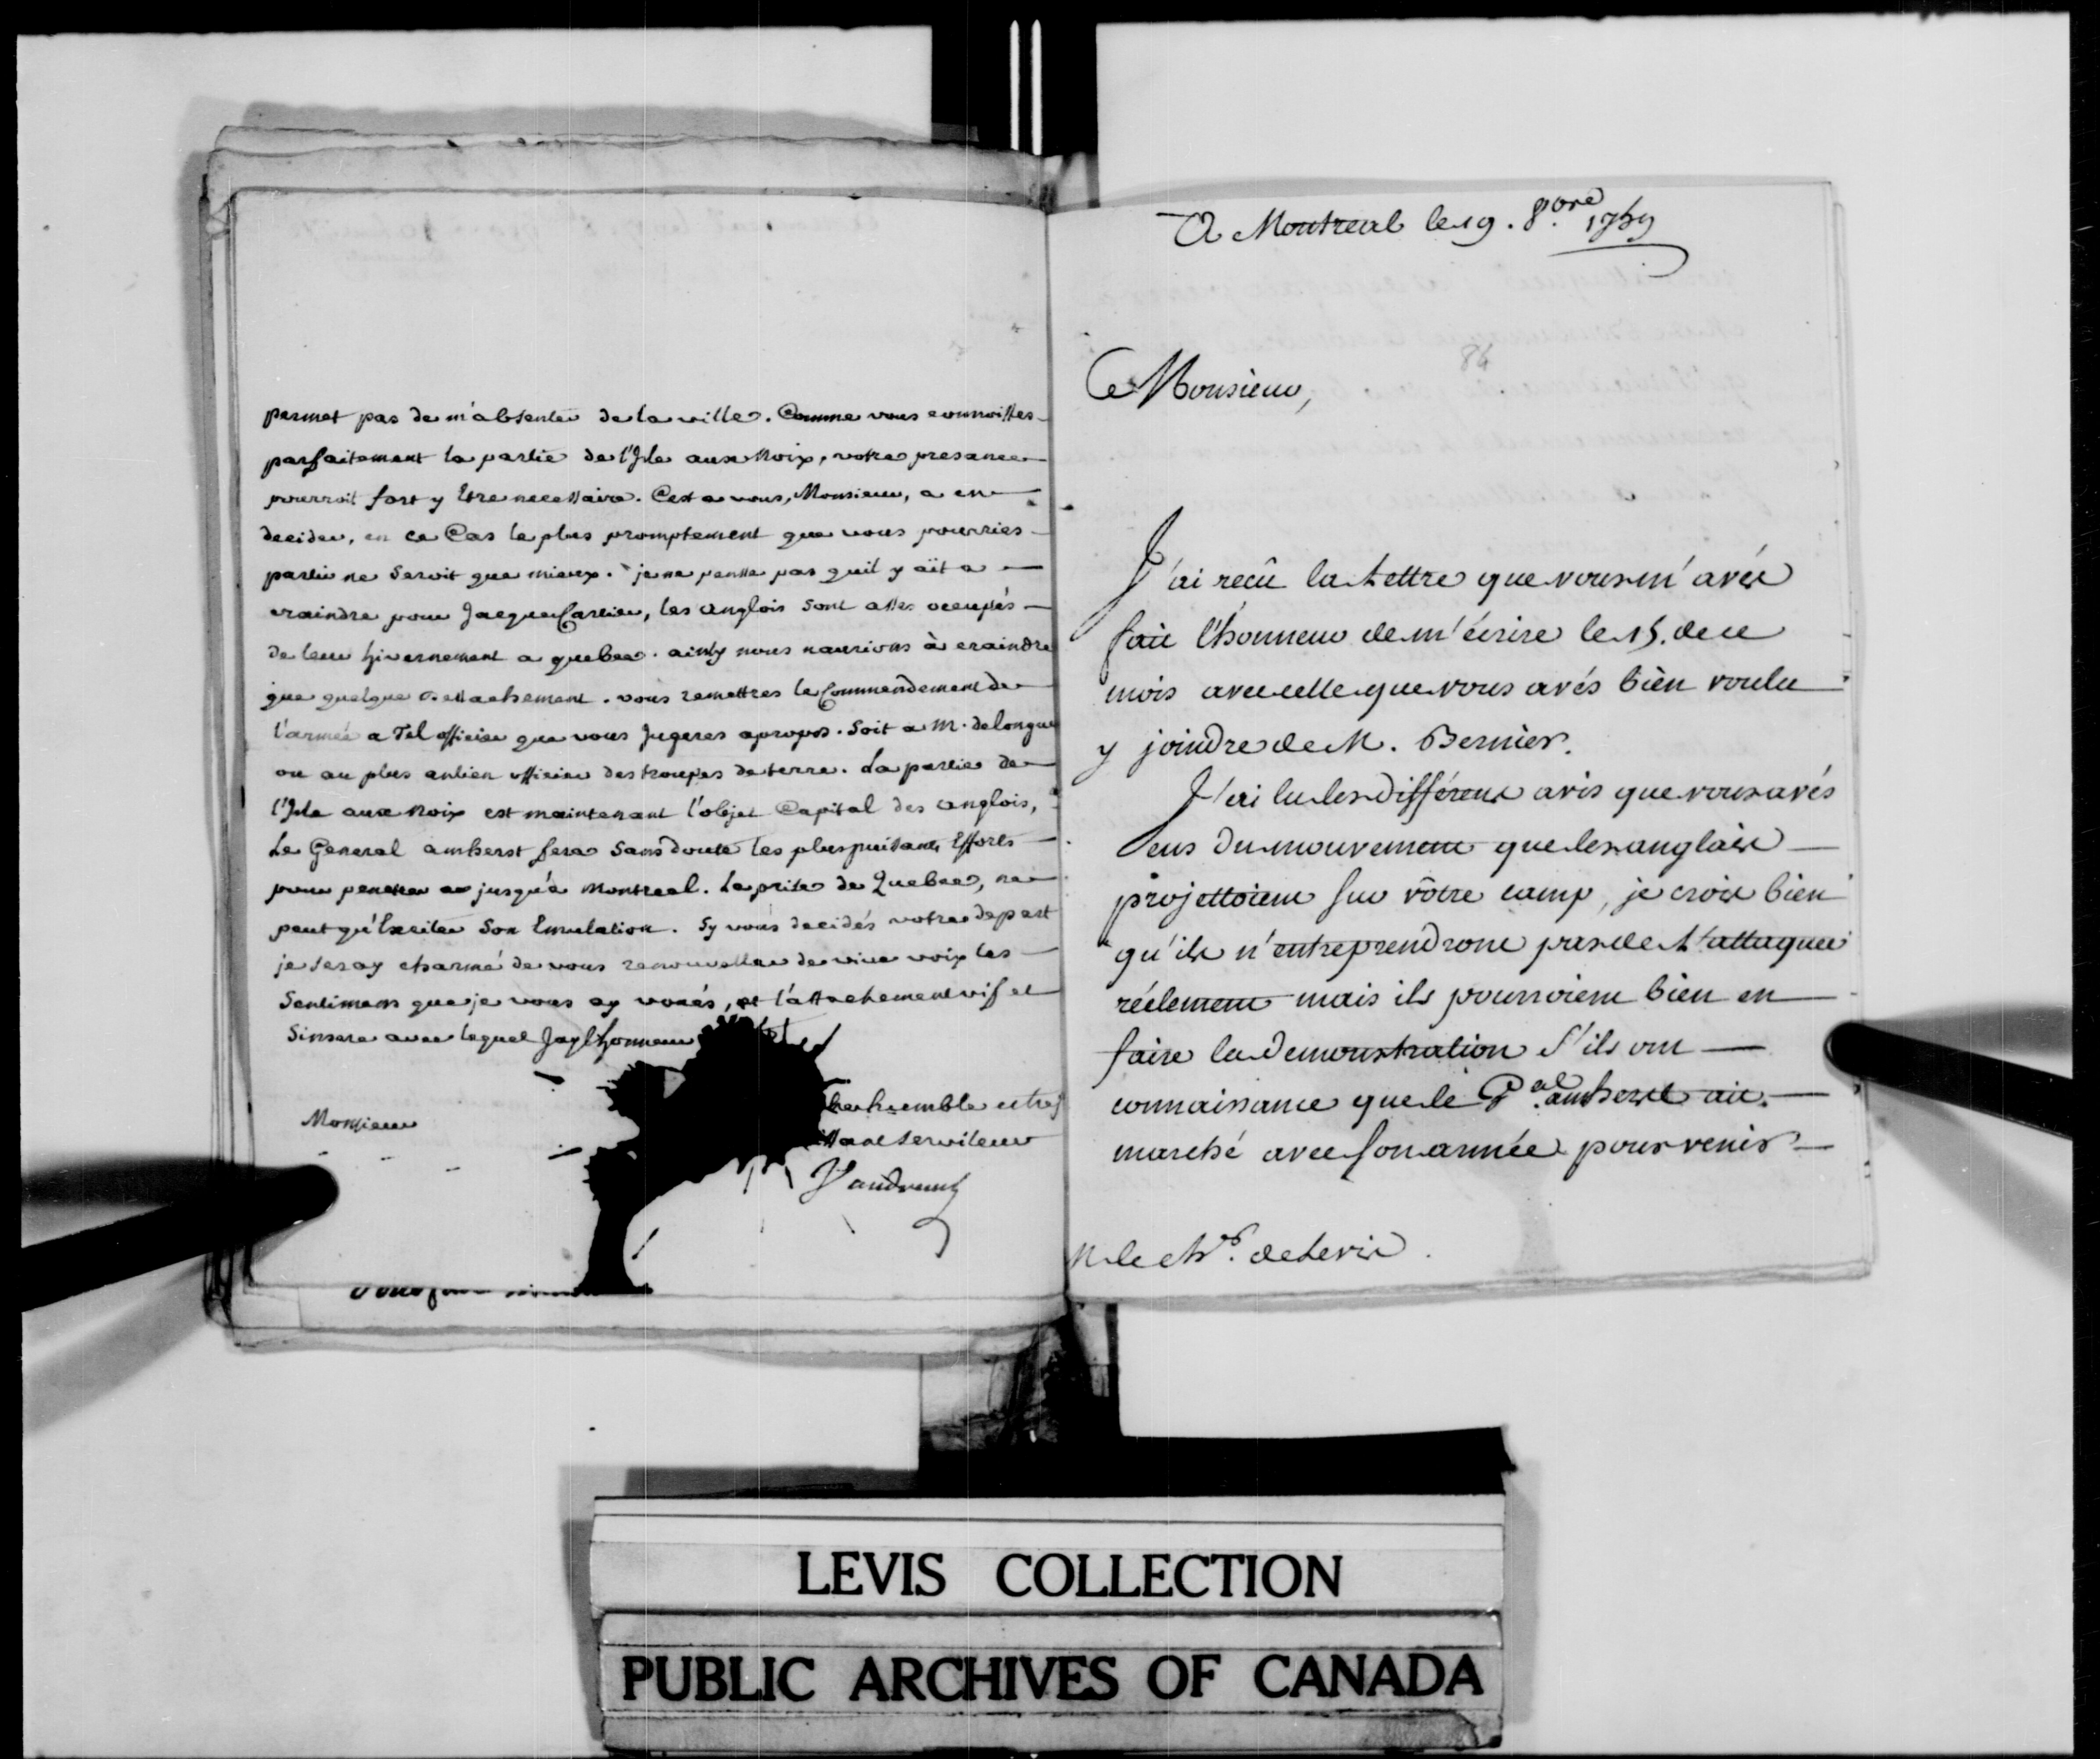 permet pas de m'absenter de la ville. Comme vous connoisses
parfaitement la partie de l'Isle aux Noix, votre presance
pourroit fort y Etre necessaire. C'est a vous, Monsieur, a en
decider, en ce Cas le plus promptement que vous pourries
partir ne seroit que mieux. je ne pense pas quil y aït a
craindre pour Jacque Cartier, les anglois sont asses occupés
de leur hivernement a quebec. ainsy nous naurions à craindre
que quelque dettachement. vous remettres le Commendement de
l'armée a Tel officier que vous Jugeres apropos. Soit a M. de longue
ou au plus antien officier des troupes de terre. La partie de
l'Isle aux Noix est maintenant l'objet Capital des anglois,
Le General amherst fera sans doute les plus puissans Efforts
pour penetrer jusqu'à Montreal. La prise de Quebec, ne
peut qu'Exciter son Emulation. Sy vous decidés votre depart
je seray charmé de vous renouveller de vive voix les
Sentimens que je vous ay voués, et l'attachement vif et
Sinsere avec lequel Jay l'honneur
Monsieur
humble et tres
ssant serviteur
Vaudreuil
A Montreal le 19. 8.bre 1759
84
Monsieur,
J'ai reçû la Lettre que vous m'avés
fait l'honneur de m'écrire le 15. de ce
mois avec celle que vous avés bien voulu
y joindre de M. Bernier.
J'ai lu les différents avis que vous avés
eus du mouvement que les anglais
projettoient sur vôtre camp, je crois bien
qu'ils n'entreprendront pas de l'attaquer
réelement mais ils pourroient bien en
faire la demonstration s'ils ont
connaissance que le G.al amherst ait
marché avec son armée pour venir
M. le Ch.er de Levis.
LEVIS COLLECTION
PUBLIC ARCHIVES OF CANADA